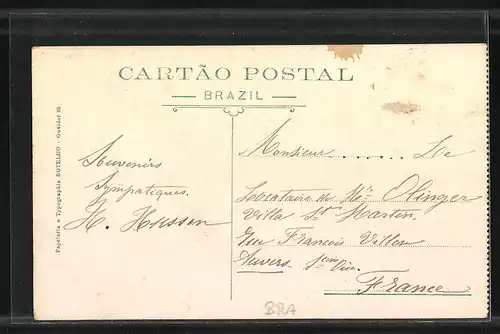 CARTÃO POSTAL
BRAZIL
Papelaria e Typographia BOTELHO - Ouvidor 65.
Souvenirs
Sympatiques.
H.
Monsieur ....... Le
Locataire de Mr. Olinger
Villa St Martin.
Rue François Villon
Auvers
France
BRA